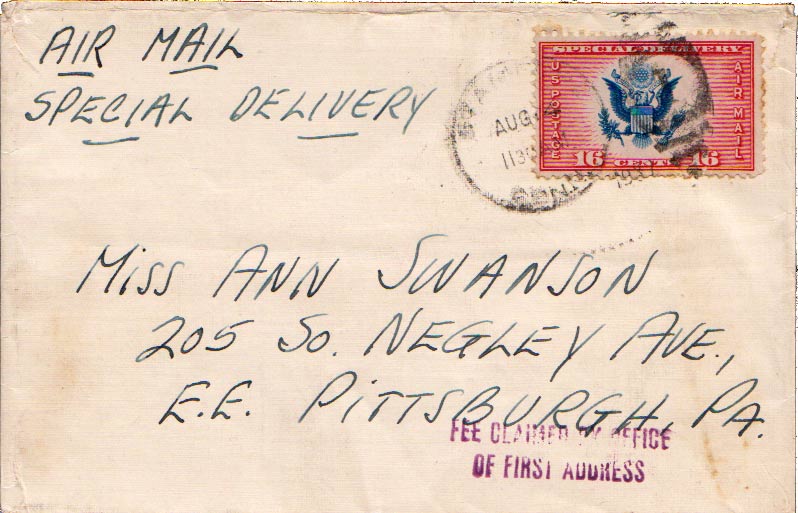 AIR MAIL
SPECIAL DELIVERY
SPECIAL DELIVERY
U.S. POSTAGE
AIR MAIL
16 CENTS 16
AUG
1137
CONN.
Miss ANN SWANSON
205 So. NEGLEY AVE.,
E.E. PITTSBURGH, PA.
FEE CLAIMED BY OFFICE
OF FIRST ADDRESS